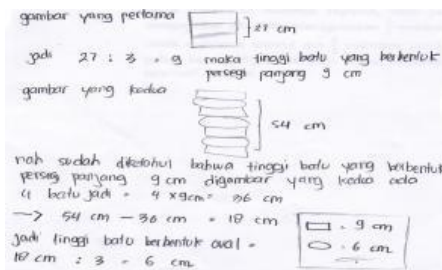 gambar yang pertama
27 cm
jadi 27 : 3 = 9 maka tinggi batu yang berbentuk
persegi panjang 9 cm
gambar yang kedua
54 cm
nah sudah diketahui bahwa tinggi batu yang berbentuk
persegi panjang 9 cm digambar yang kedua ada
4 batu jadi = 4 x 9cm = 36 cm
→ 54 cm - 36 cm = 18 cm
jadi tinggi batu berbentuk oval =
18 cm : 3 = 6 cm
= 9 cm
= 6 cm